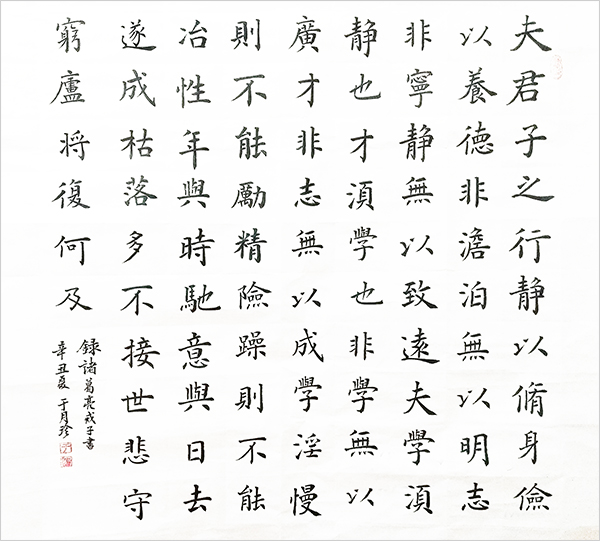 夫君子之行静以脩身儉
以養德非澹泊無以明志
非寧静無以致遠夫學須
静也才須學也非學無以
廣才非志無以成學淫慢
則不能勵精險躁則不能
冶性年與時馳意與日去
遂成枯落多不接世悲守
窮廬将復何及
錄諸葛亮戒子書
辛丑夏于月珍